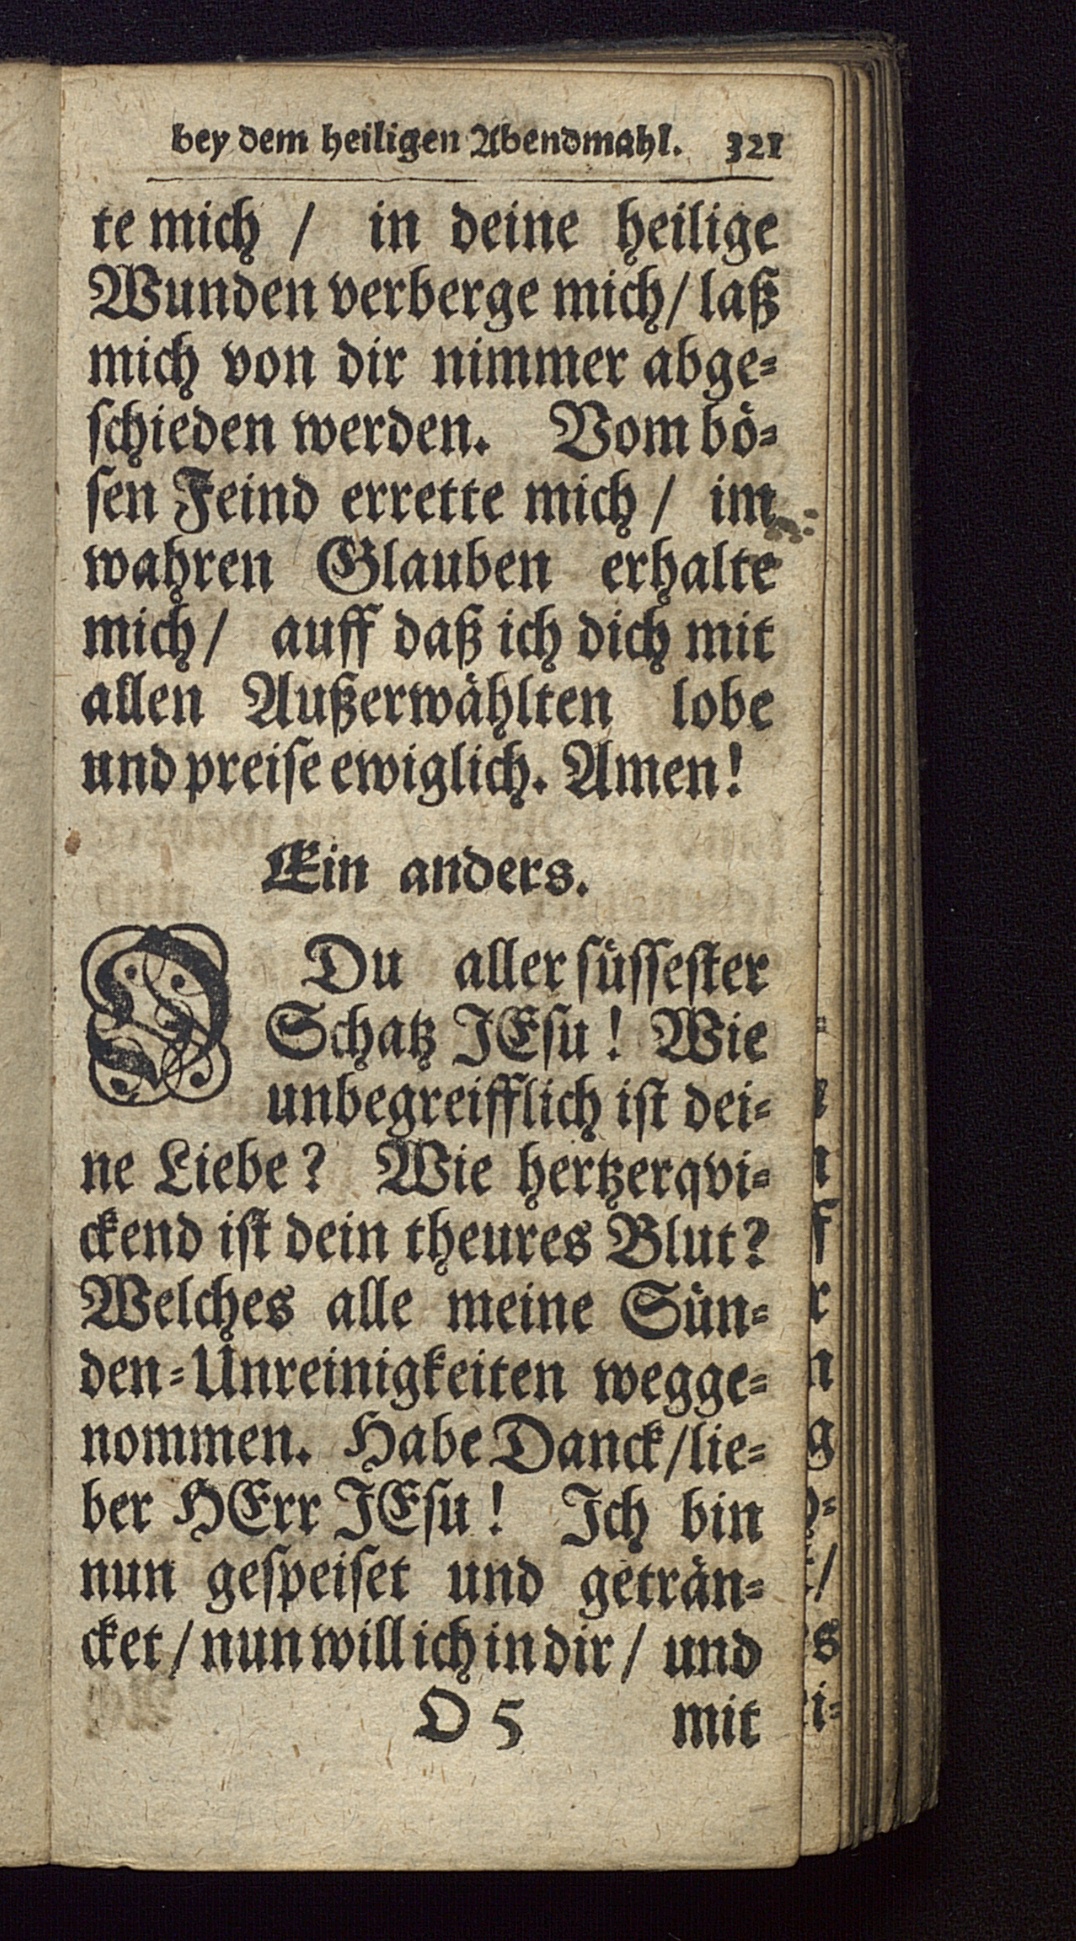 bey dem heiligen Abendmahl. 321
te mich / in deine heilige
Wunden verberge mich / laß
mich von dir nimmer abge⸗
ſchieden werden. Vom boͤ⸗
ſen Feind errette mich / im
wahren Glauben erhalte
mich / auff daß ich dich mit
allen Außerwaͤhlten lobe
und preiſe ewiglich. Amen!
Ein anders.
O Du aller ſuͤſſeſter
Schatz JEſu! Wie
unbegreifflich iſt dei⸗
ne Liebe? Wie hertzerqvi⸗
ckend iſt dein theures Blut?
Welches alle meine Suͤn⸗
den⸗Unreinigkeiten wegge⸗
nommen. Habe Danck / lie⸗
ber HErr JEſu! Ich bin
nun geſpeiſet und getraͤn⸗
cket / nun will ich in dir / und
O 5 mit